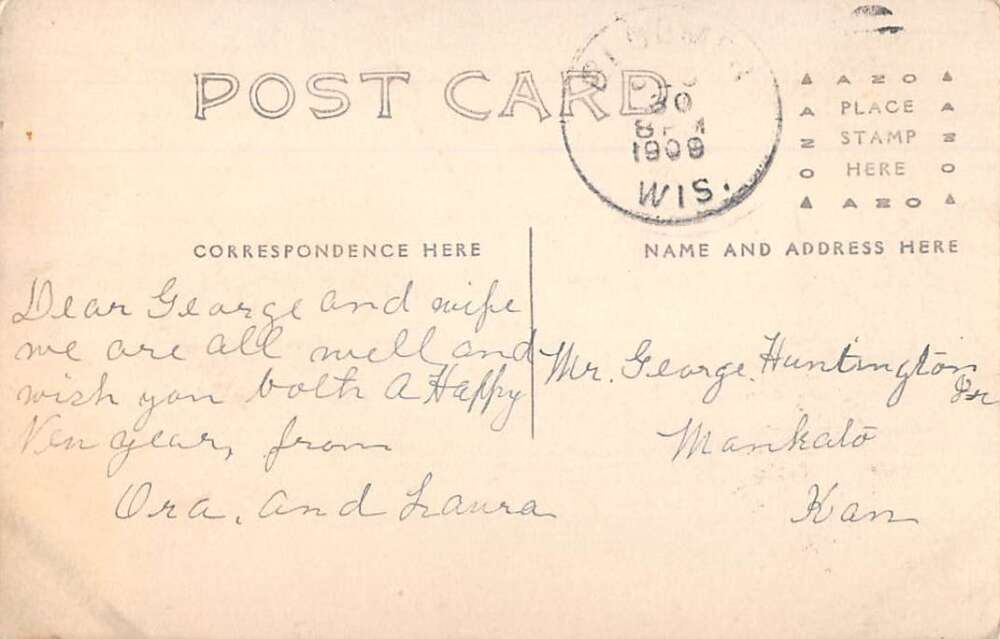 POST CARD
30
8 PM
1909
WIS.
AZO
PLACE
STAMP
HERE
AZO
AZO
AZO
CORRESPONDENCE HERE
NAME AND ADDRESS HERE
Dear George and wife
we are all well and
wish you both A Happy
New year, from
Ora, and Laura
Mr. George Huntington
Jr
Mankato
Kan